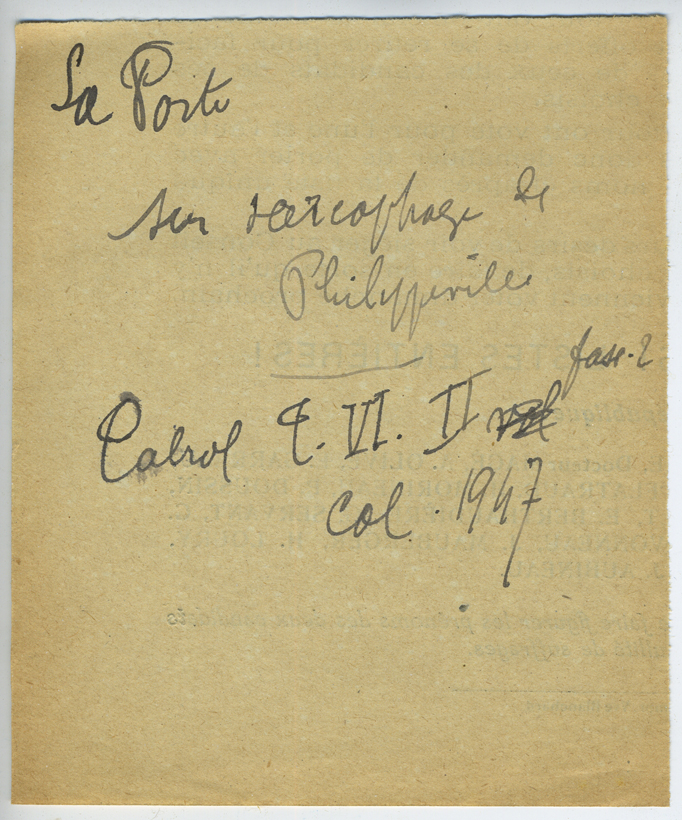 La Porte
sur sarcophage de
Philippeville
fasc. 2
Cabrol T. VI. II
col. 1947